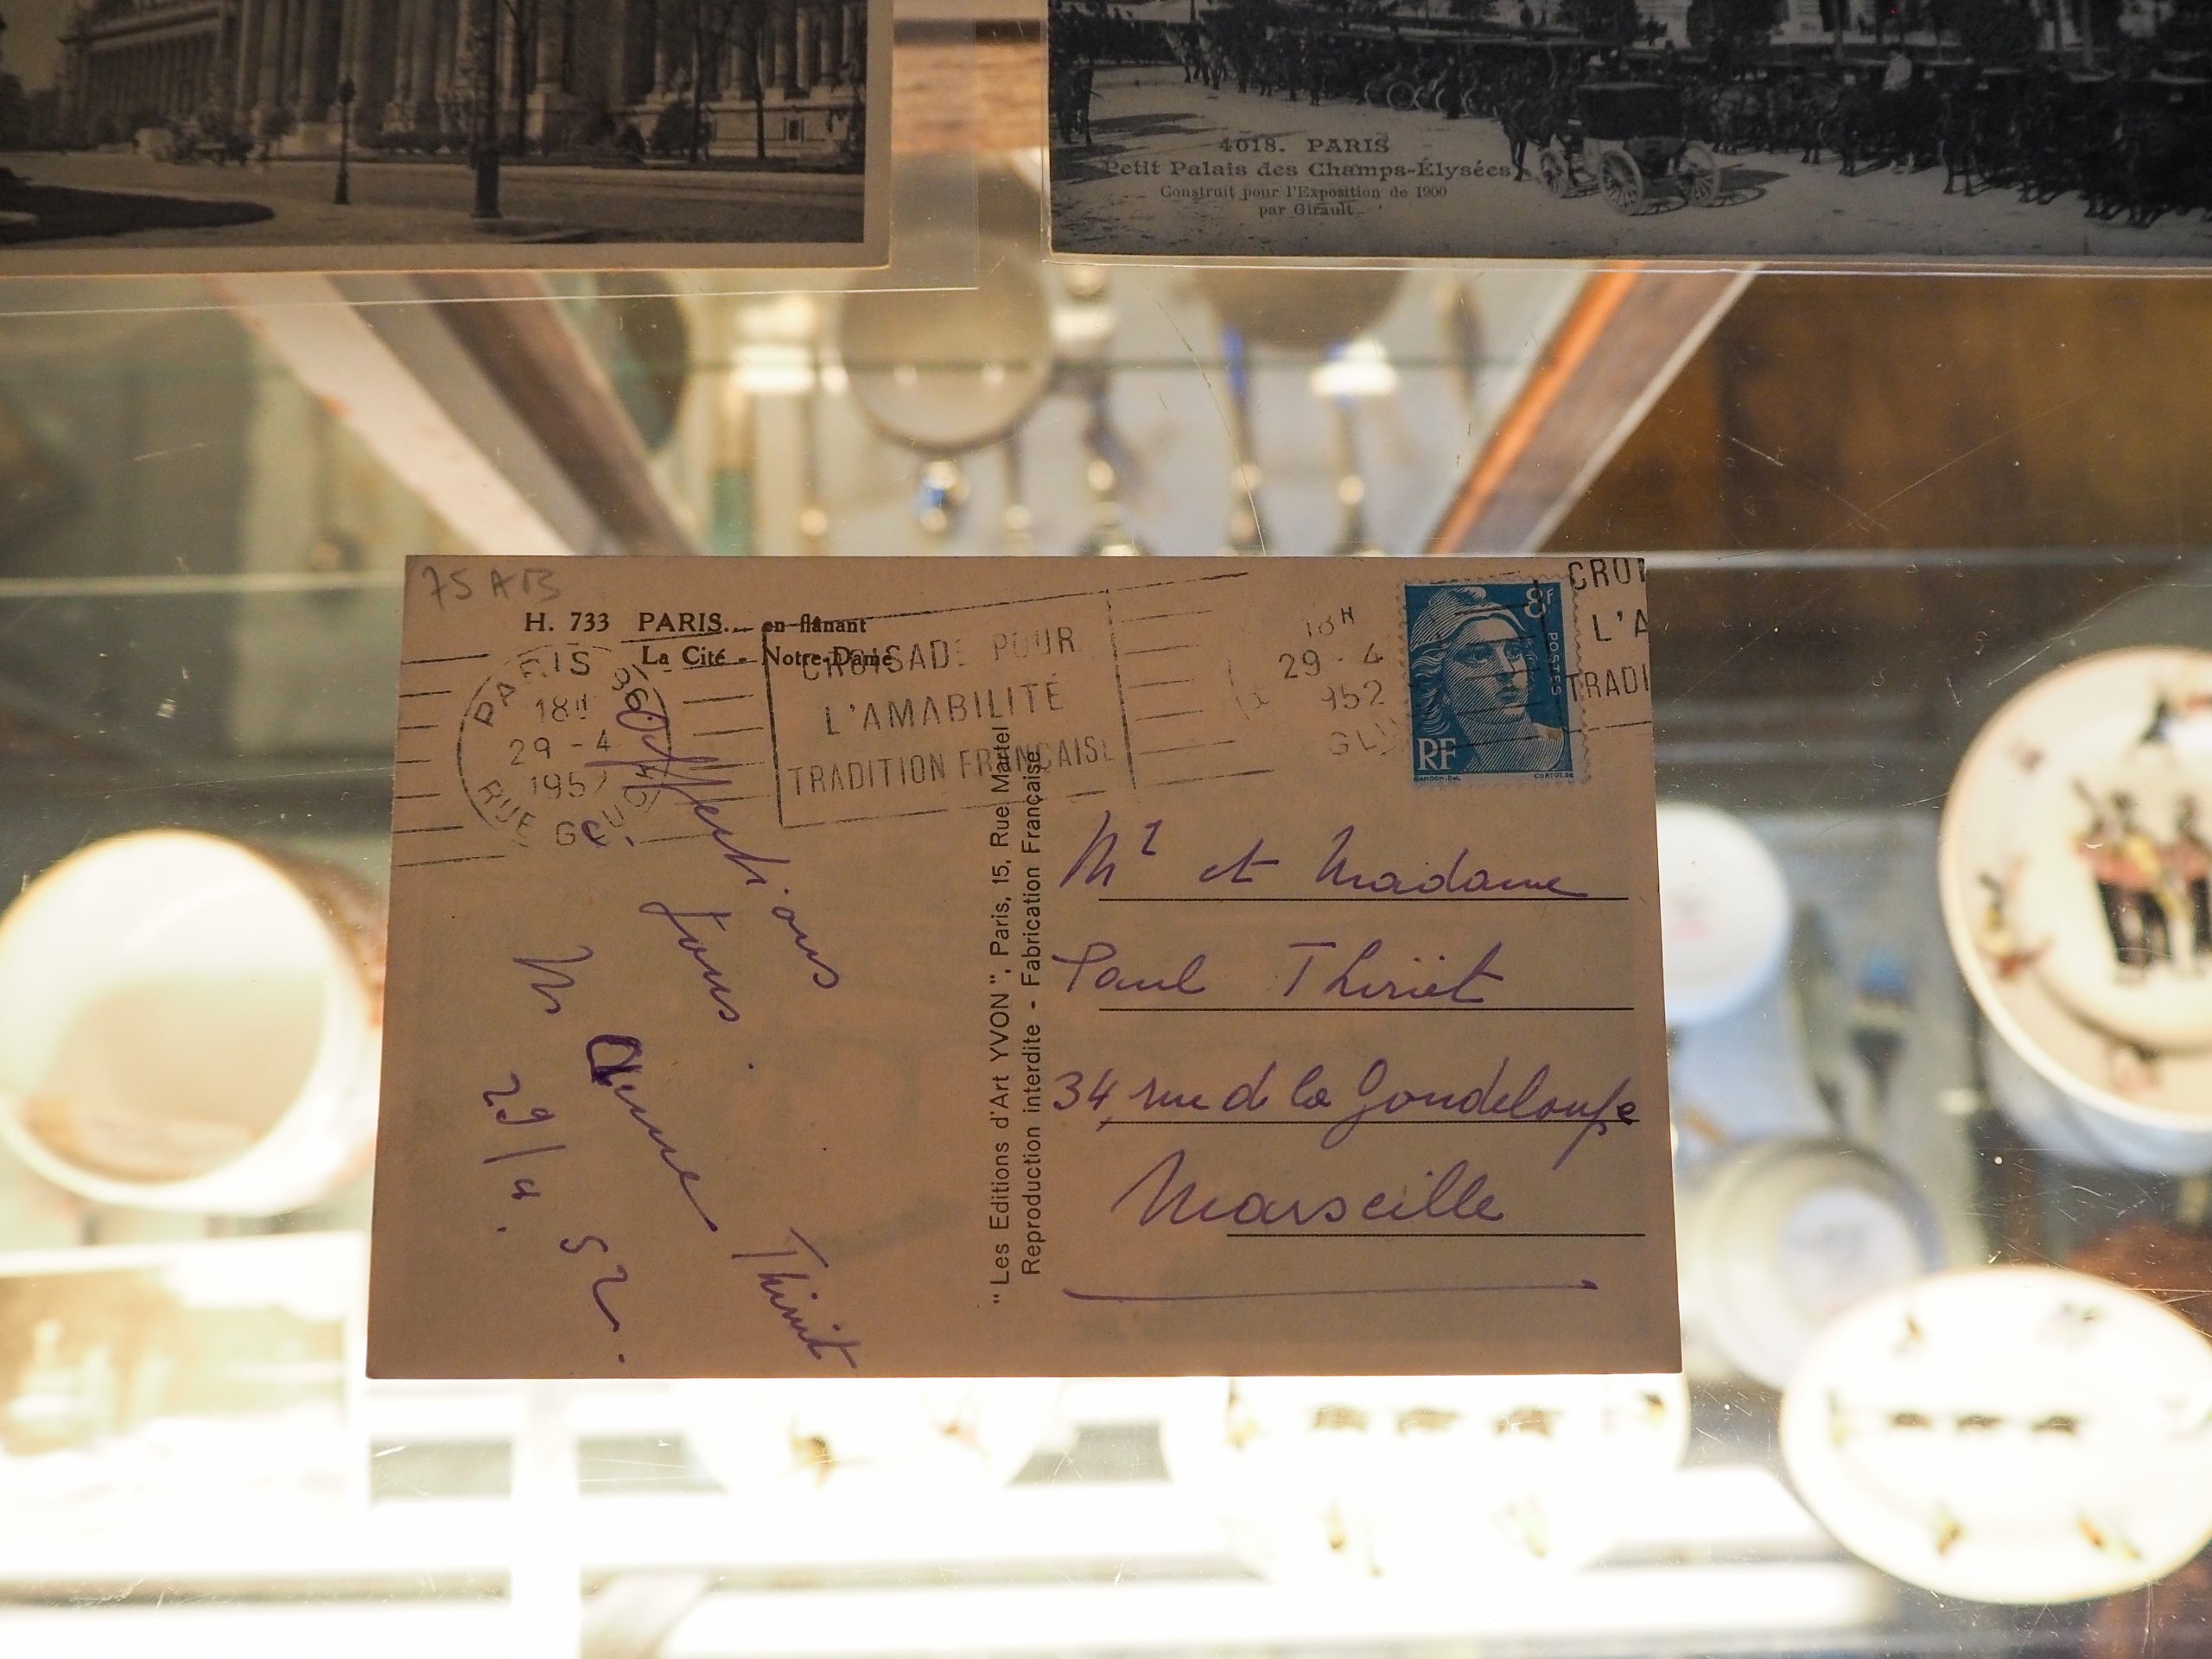 4018. PARIS
Petit Palais des Champs-Élysées
Construit pour l'Exposition de 1900
par Girault
75 A B
H. 733 PARIS... en flânant
La Cité - Notre-Dame
PARIS
18H
29 - 4
1952
RUE GLUCK
CROISADE POUR
L'AMABILITÉ
TRADITION FRANÇAISE
18H
29 - 4
1952
GL
8F
POSTES
RF
GANDON.DEL.
CORTOT.SC
CROI
L'A
TRADI
Affections
à tous.
Anne Thiriet
29/4.52.
"Les Editions d'Art YVON", Paris, 15, Rue Martel
Reproduction interdite - Fabrication Française
Mr et Madame
Paul Thiriet
34 rue d la Goudeloupe
Marseille